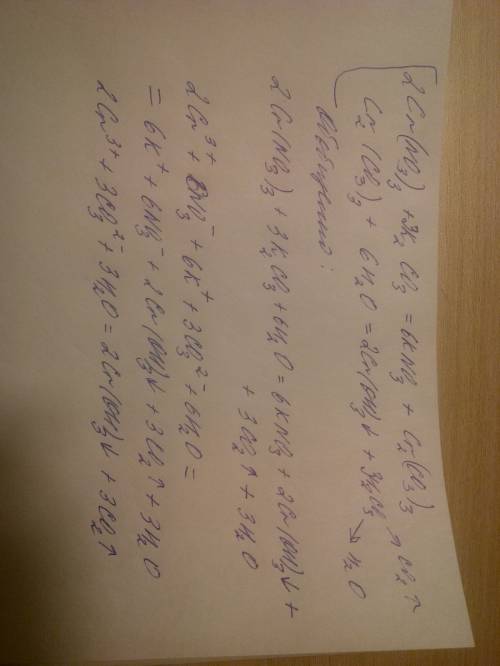 2Cr(NO₃)₃ + 3K₂CO₃ = 6KNO₃ + Cr₂(CO₃)₃
Cr₂(CO₃)₃ + 6H₂O = 2Cr(OH)₃↓ + 3H₂CO₃ ↗ CO₂↑ ↘ H₂O
2Cr(NO₃)₃ + 3K₂CO₃ + 6H₂O = 6KNO₃ + 2Cr(OH)₃↓ +
+ 3CO₂↑ + 3H₂O
2Cr³⁺ + 6NO₃⁻ + 6K⁺ + 3CO₃²⁻ + 6H₂O =
= 6K⁺ + 6NO₃⁻ + 2Cr(OH)₃↓ + 3CO₂↑ + 3H₂O
2Cr³⁺ + 3CO₃²⁻ + 3H₂O = 2Cr(OH)₃↓ + 3CO₂↑